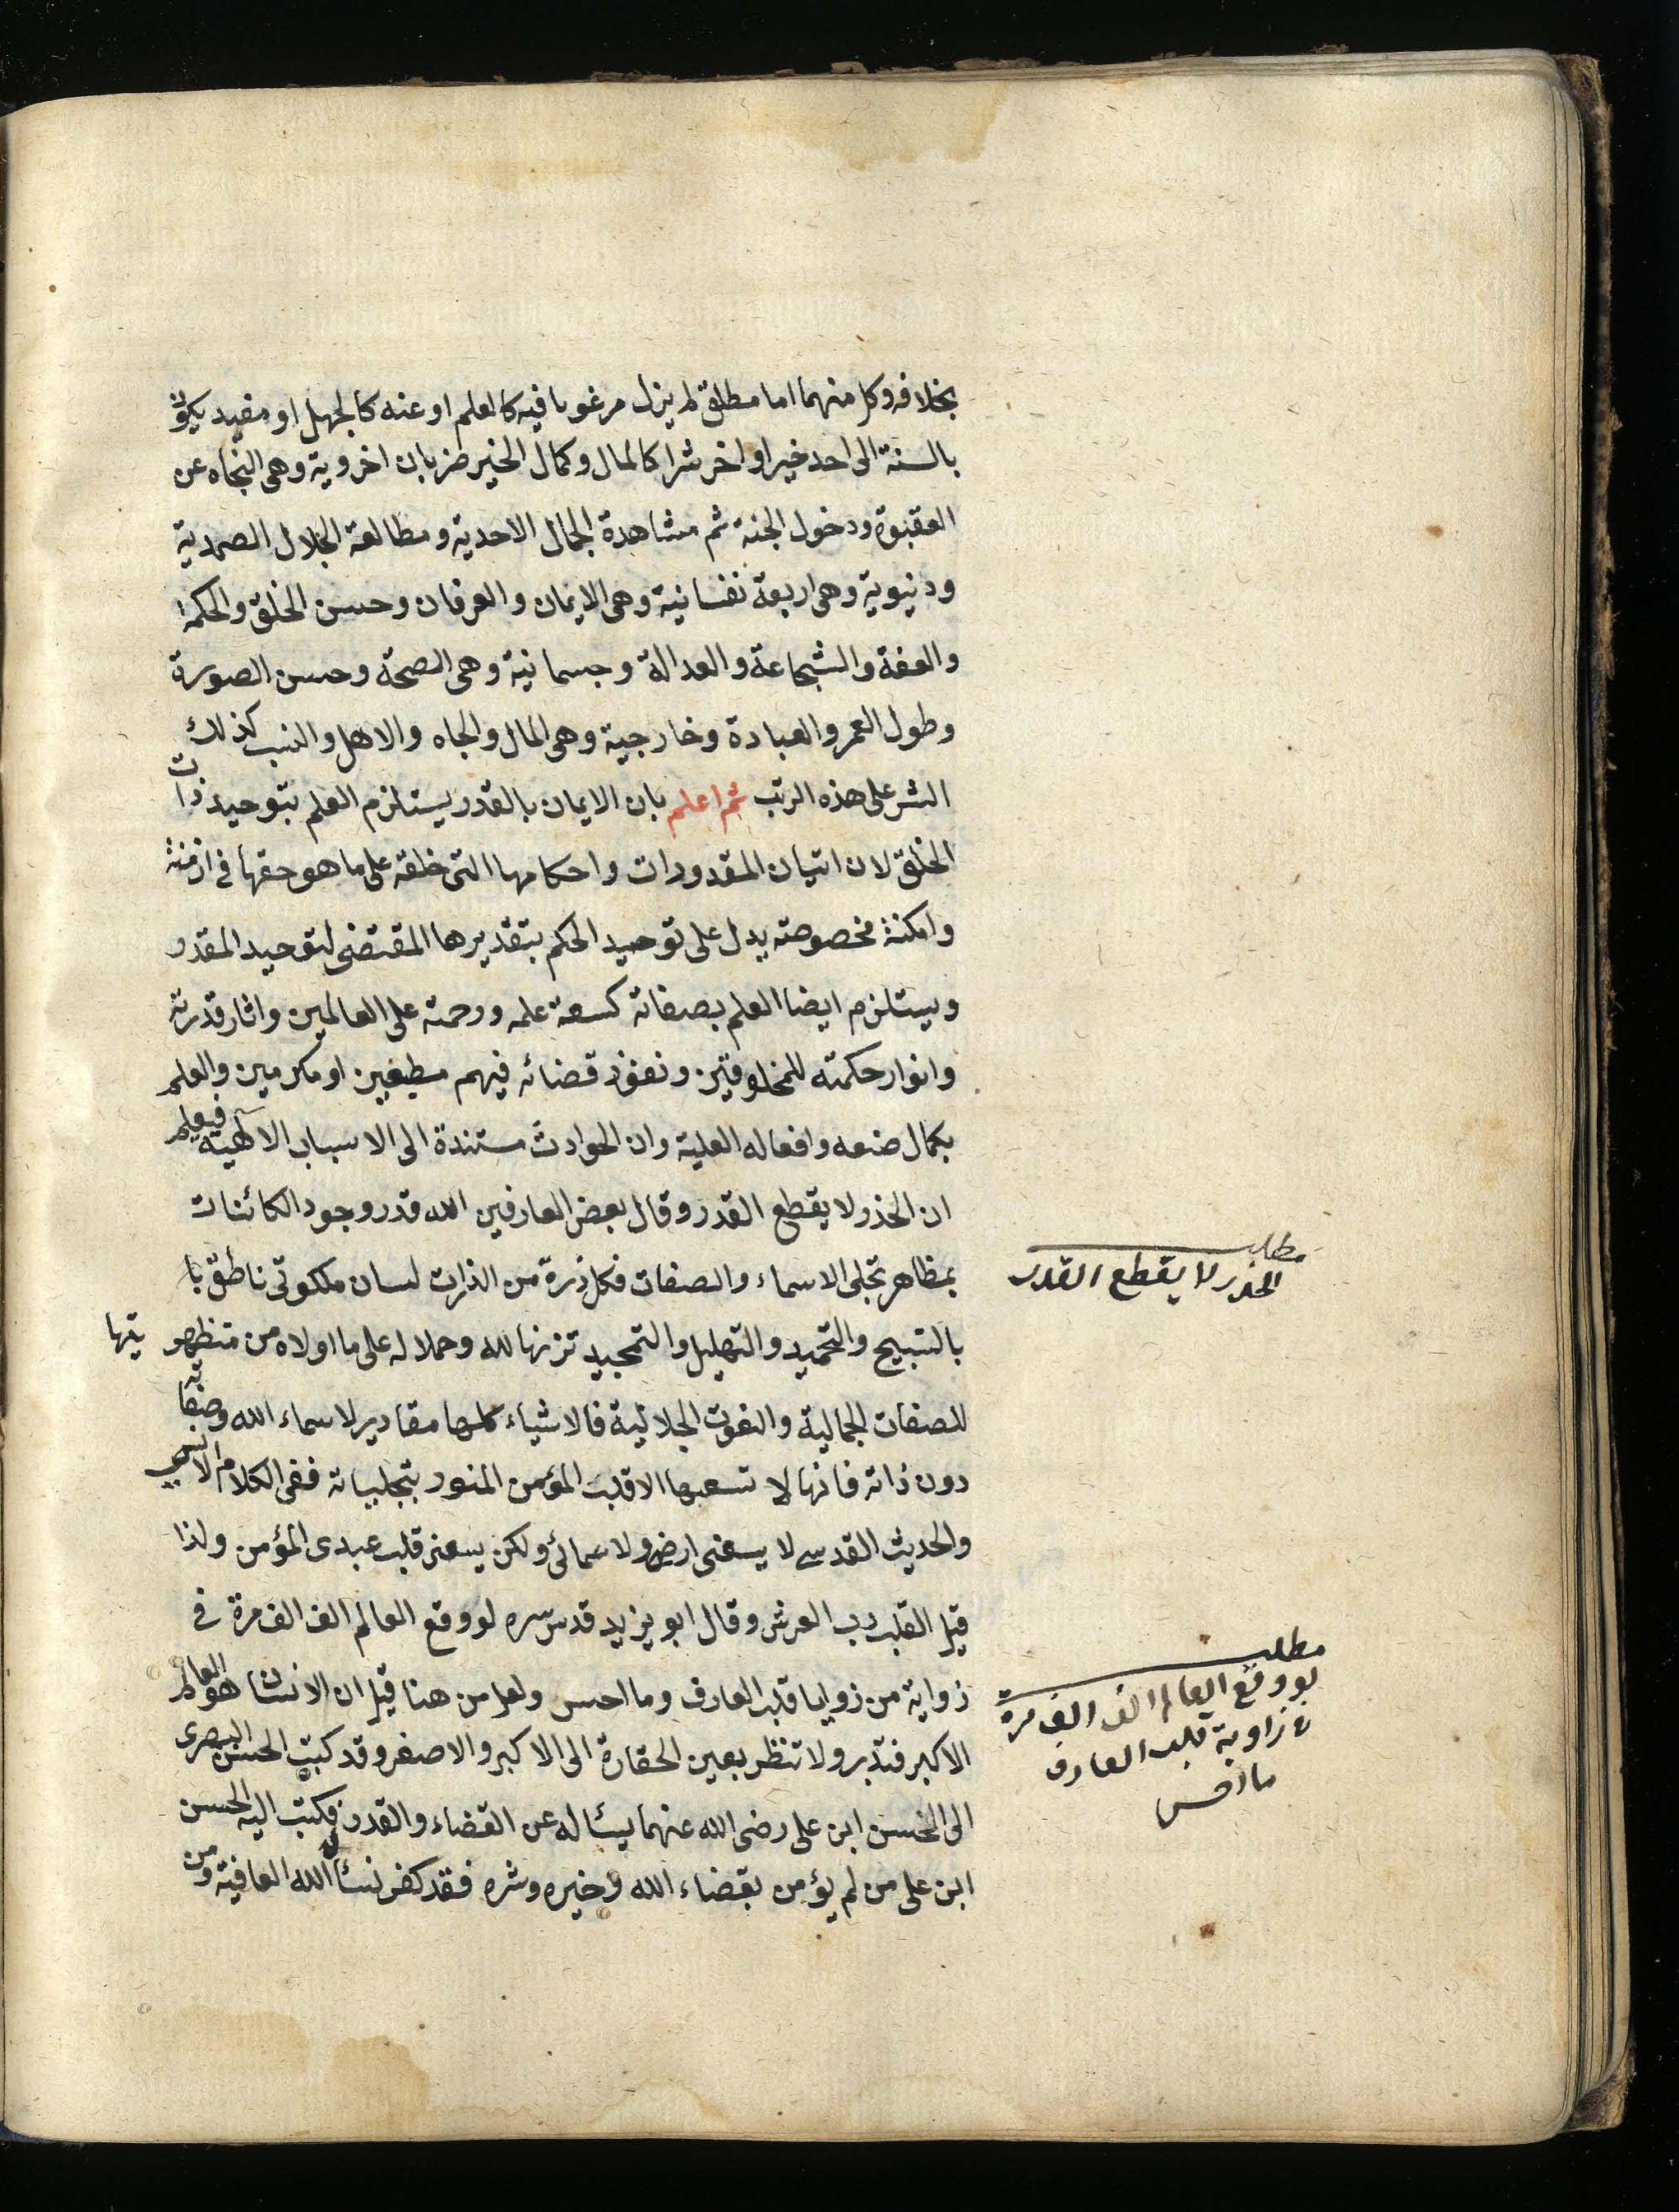 بخلافه وكل منهما اما مطلق لم يزل مرغوبا فيه كالعلم او عنه كالجهل او مقيد يكون
بالسنة الى احد خيرا و اخر شرا كالمال وكمال الخير ضربان اخروية وهى النجاه عن
العقبوة ودخول الجنة ثم مشاهدة الجمال الاحدية ومطالعة الجلال الصمدية
ودنيوية وهى اربعة نفسانية وهى الايمان والعرفان وحسن الخلق والحكمة
والعفة والشجاعة والعدالة وجسمانية وهى الصحة وحسن الصورة
وطول العمر والعبادة وخارجية وهى المال والجاه والاهل والنسب كذلك
الشر على هذه الرتب ثم اعلم بان الايمان بالقدر يستلزم العلم بتوحيد ذات
الخلق لان اتيان المقدورات واحكامها التى خلقه على ما هو حقها فى ازمنة
وامكنة مخصوصته يدل على توحيد الحكم بتقديرها المقتضى لتوحيد المقدر
ويستلزم ايضا العلم بصفاته كسعة علمه ورحمته على العالمين واثار قدرته
وانوار حكمته للمخلوقين ونفوذ قضائه فيهم مطيعين او مكرمين والعلم
بكمال صنعه وافعاله العلية وان الحوادث مستندة الى الاسباب الآلهية فيعلم
ان الحذر لا يقطع القدر وقال بعض العارفين الله قدر وجود الكائنات
بمظاهر تجلى الاسماء والصفات فكل ذرة من الذرات لسان ملكوتى ناطق با
بالتسبيح والتحميد والتهليل والتمجيد تنزيها لله وحملا له على ما اولاه من متظهريتها
للصفات الجمالية والنعوت الجلالية فالاشياء كلها مقادير لاسماء الله وصفاته
دون ذاته فانها لا تسعها الا قلب المؤمن المنور بتجلياته ففى الكلام الانسى
والحديث القدسى لا يسعنى ارضى ولا سمائى ولكن يسعنى قلب عبدى المؤمن ولذا
قيل القلب رب العرش وقال ابو يزيد قدس سره لو وقع العالم الف الف مرة فى
زواية من زوايا قلب العارف وما احس ولعل من هنا قيل ان الانسان هو العالم
الاكبر فتدبر ولا تنظر بعين الحقارة الى الاكبر والاصغر وقد كتب الحسن البصرى
الى الحسن ابن على رضى الله عنهما يسئاله عن القضاء والقدر فكتب اليه الحسن
ابن على من لم يؤمن بقضاء الله وخيره وشره فقد كفر نسأل الله العافية ومن
مطلب
الحذر لا يقطع القدر
مطلب
لو وقع العالم الف الف مرة
فى زاوية قلب العارف
ما احس